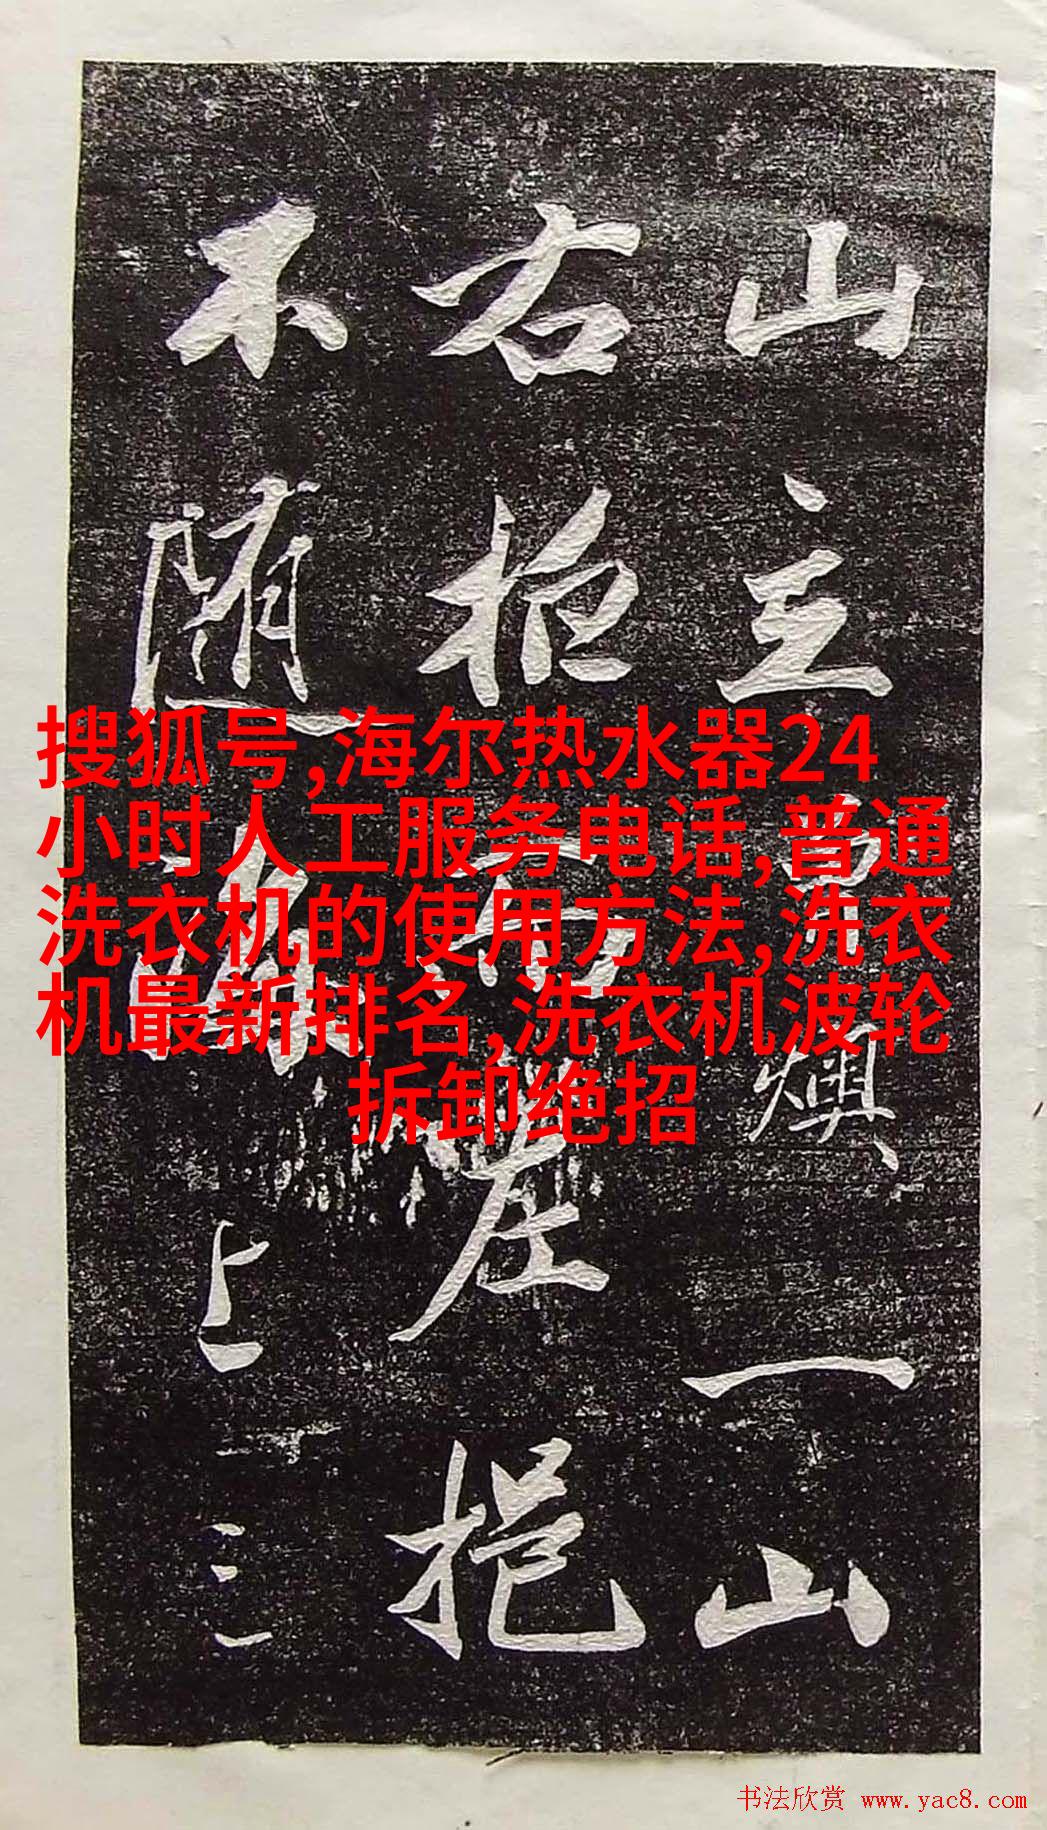 山主景燠、一山
右极而左挹
不随海上三
搜狐号,海尔热水器24
小时人工服务电话,普通
洗衣机的使用方法,洗衣
机最新排名,洗衣机波轮
拆卸绝招
书法欣赏 www.yac8.com